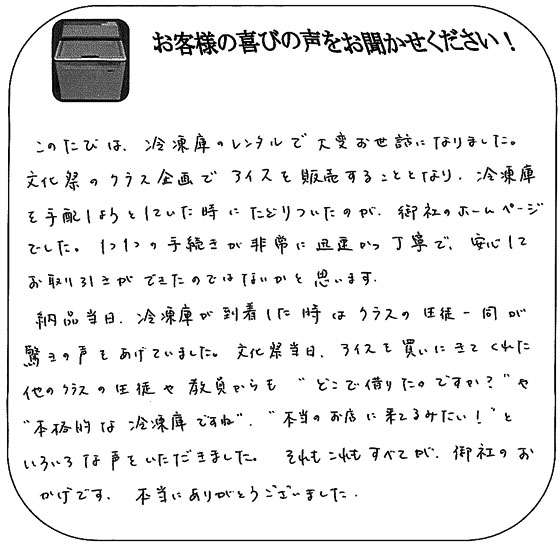 お客様の喜びの声をお聞かせください！
このたびは、冷凍庫のレンタルで大変お世話になりました。
文化祭のクラス企画でアイスを販売することとなり、冷凍庫
を手配しようとしていた時にたどりついたのが、御社のホームページ
でした。1つ1つの手続きが非常に迅速かつ丁寧で、安心して
お取り引きができたのではないかと思います。
納品当日、冷凍庫が到着した時はクラスの生徒一同が
驚きの声をあげていました。文化祭当日、アイスを買いにきてくれた
他のクラスの生徒や教員からも"どこで借りたのですか？"や
"本格的な冷凍庫ですね"、"本当のお店に来てるみたい！"と
いろいろな声をいただきました。それもこれもすべてが、御社のお
かげです。本当にありがとうございました。